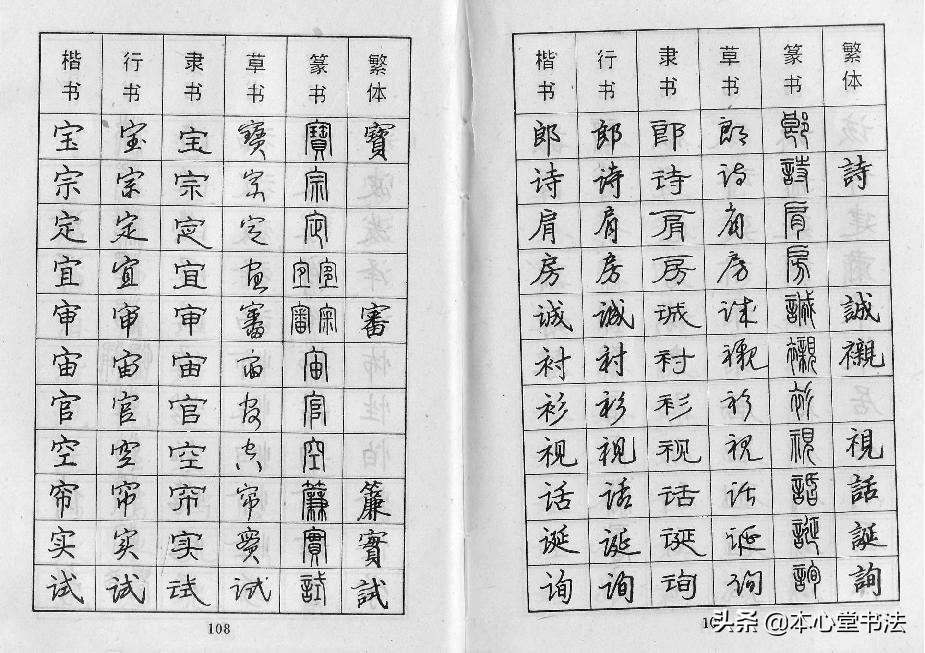 楷书 行书 隶书 草书 篆书 繁体
宝 宝 宝 寶 寶 寶
宗 宗 宗 宗 宗
定 定 定 定 定
宜 宜 宜 宜 宜 宜
审 审 审 審 審 宷 審
宙 宙 宙 宙 宙
官 官 官 官 官
空 空 空 空 空
帘 帘 帘 帘 簾 簾
实 实 实 實 實 實
试 试 试 试 試 試
108
楷书 行书 隶书 草书 篆书 繁体
郎 郎 郎 郎 郎
诗 诗 诗 诗 詩 詩
肩 肩 肩 肩 肩
房 房 房 房 房
诚 诚 诚 诚 誠 誠
衬 衬 衬 襯 襯 襯
衫 衫 衫 衫 衫
视 视 视 视 視 視
话 话 话 话 話 話
诞 诞 诞 诞 誕 誕
询 询 询 询 詢 詢
头条 @本心堂书法